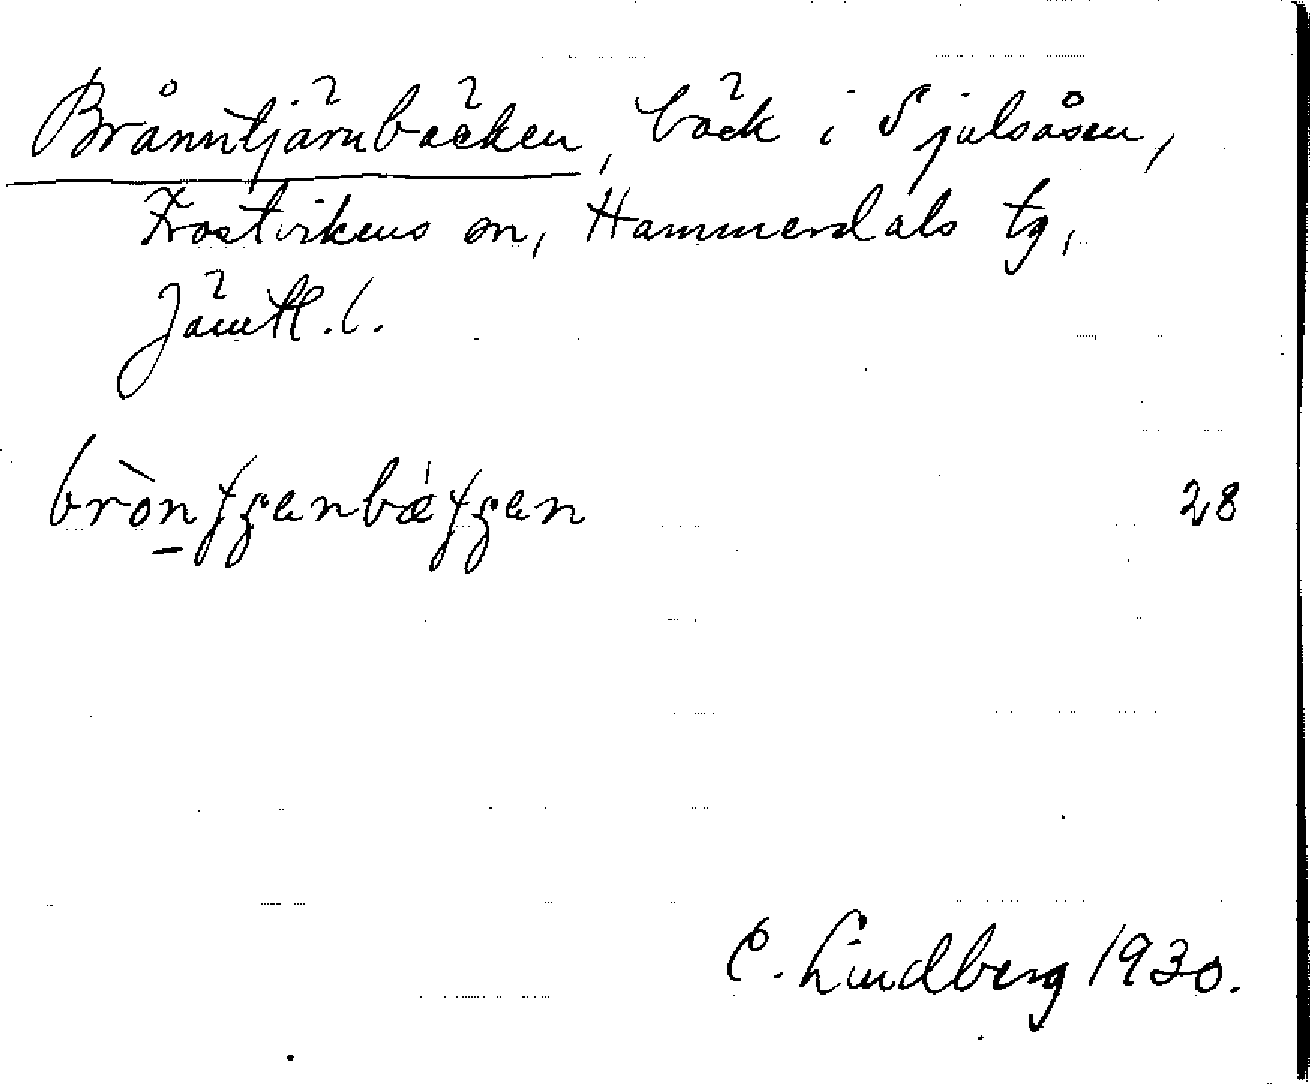 Brånntjärnbäcken, bäck i Sjulsåsen,
Frostvikens sn, Hammerdals tg,
Jämtl. l.
28
C. Lindberg 1930.